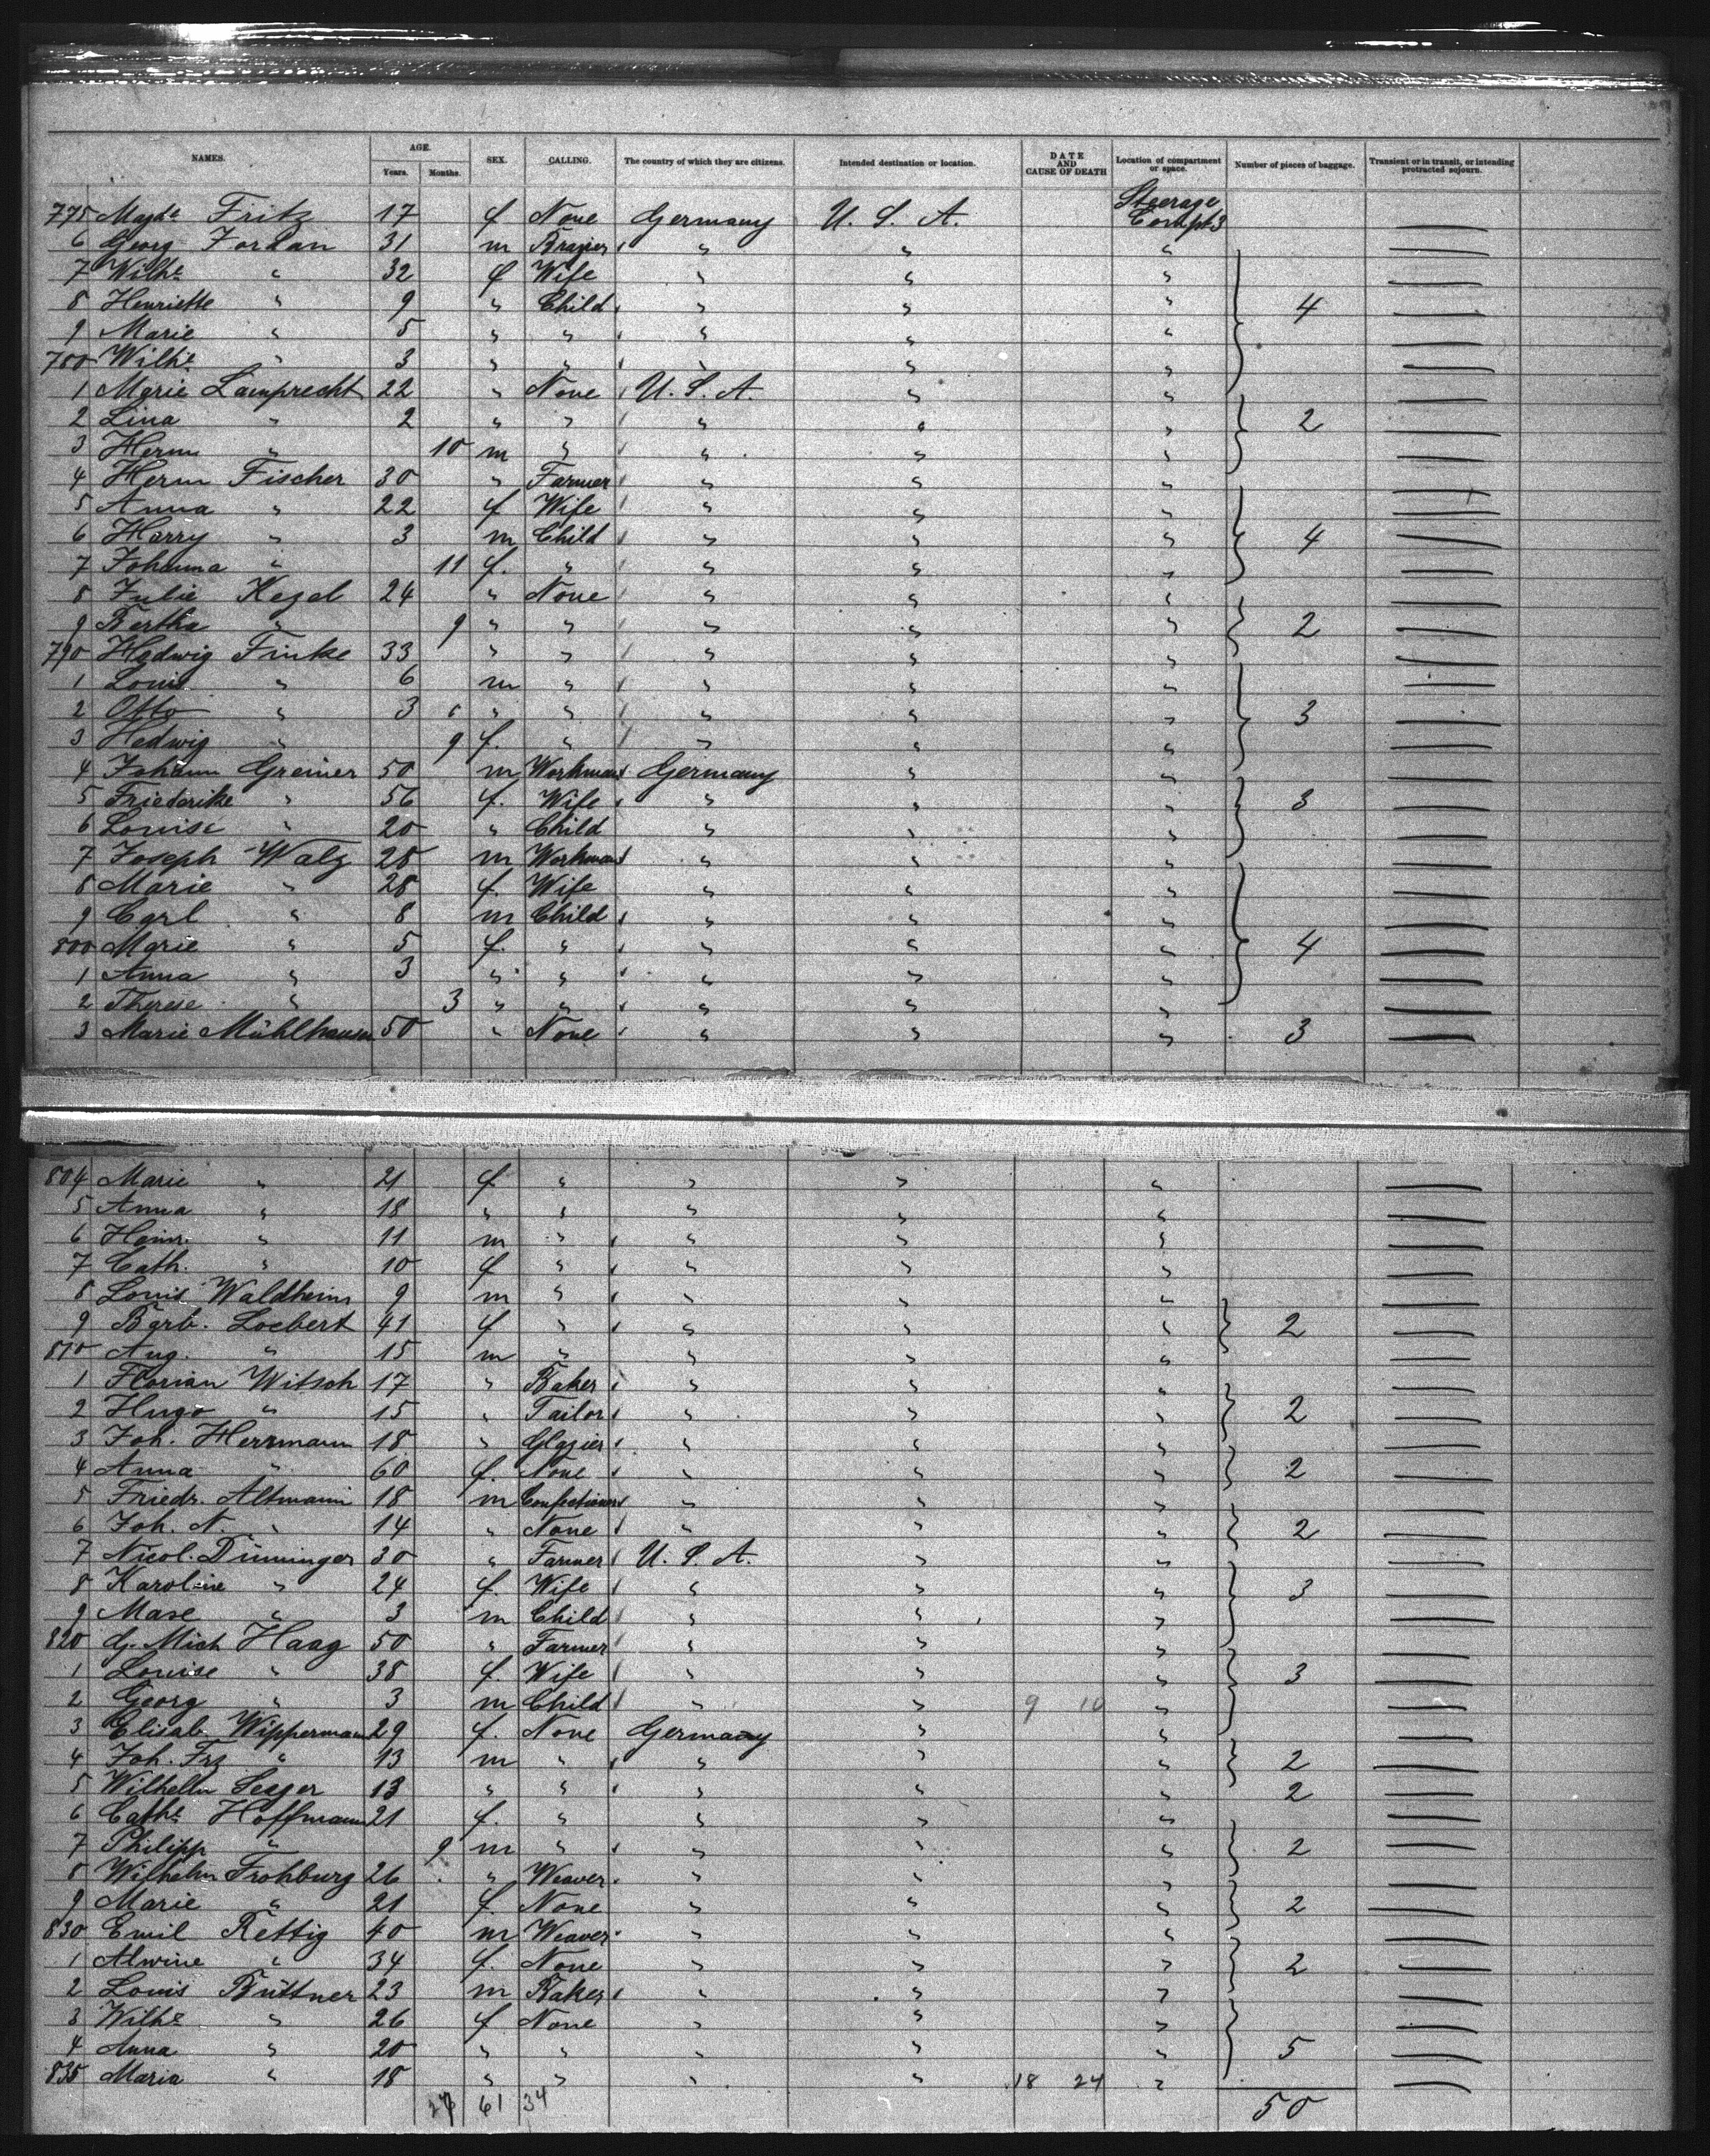 NAMES. AGE. Years. Months. SEX. CALLING. The country of which they are citizens. Intended destination or location. DATE AND CAUSE OF DEATH Location of compartment or space. Number of pieces of baggage. Transient or in transit, or intending protracted sojourn.
775 Magde Fritz 17 f None Germany U. S. A. Steerage Compt 3 —
6 Georg Jordan 31 m Brazier " " " —
7 Wilhe " 32 f Wife " " " —
8 Henriette " 9 " Child " " " 4 —
9 Marie " 5 " " " " " —
780 Wilhe " 3 " " " " " —
1 Marie Lamprecht 22 " None U. S. A. " " —
2 Lina " 2 " " " " " 2 —
3 Herm " 10 m " " " " —
4 Herm Fischer 30 " Farmer " " " —
5 Anna " 22 f Wife " " " —
6 Harry " 3 m Child " " " 4 —
7 Johanna " 11 f. " " " " —
8 Julie Kegel 24 " None " " " —
9 Bertha " 9 " " " " " 2 —
790 Hedwig Finke 33 " " " " " —
1 Louis " 6 m " " " " —
2 Otto " 3 6 " " " " " 3 —
3 Hedwig " 9 f. " " " " —
4 Johann Greiner 50 m Workman Germany " " —
5 Friederike " 56 f. Wife " " " 3 —
6 Louise " 20 " Child " " " —
7 Joseph Walz 28 m Workman " " " —
8 Marie " 28 f. Wife " " " —
9 Carl " 8 m Child " " " —
800 Marie " 5 f. " " " " 4 —
1 Anna " 3 " " " " " —
2 Therese " 3 " " " " " —
3 Marie Mühlhausen 50 " None " " " 3 —
804 Marie " 21 f " " " " —
5 Anna " 18 " " " " " —
6 Heinr. " 11 m " " " " —
7 Cath. " 10 f " " " " —
8 Louis Waldheim 9 m " " " " —
9 Barb. Loebert 41 f " " " " 2 —
810 Aug. " 15 m " " " " —
1 Florian Witsch 17 " Baker " " " —
2 Hugo " 15 " Tailor " " " 2 —
3 Joh. Herrmann 18 " Glazier " " " —
4 Anna " 60 f. None " " " 2 —
5 Friedr. Altmann 18 m Confectioner " " " —
6 Joh. N. " 14 " None " " " 2 —
7 Nicol. Dünninger 30 " Farmer U. S. A. " " —
8 Karoline " 24 f. Wife " " " 3 —
9 Maxe " 3 m Child " " " —
820 G. Mich Haag 50 " Farmer " " " —
1 Louise " 38 f. Wife " " " 3 —
2 Georg " 3 m Child " " 9 10 " —
3 Elisab. Wippermann 29 f. None Germany " " —
4 Joh. Frz " 13 m " " " " 2 —
5 Wilhelm 13 " " " " " 2 —
6 Cathe Hoffmann 21 f. " " " " —
7 Philipp " 9 m " " " " 2 —
8 Wilhelm Frohburg 26 " Weaver " " " —
9 Marie " 21 f. None " " " 2 —
830 Emil Rettig 40 m Weaver " " " —
1 Alwine " 34 f. None " " " 2 —
2 Louis Büttner 23 m Baker " " " —
3 Wilhe " 26 f None " " " —
4 Anna " 20 " " " " " 5 —
835 Maria " 18 " " " " 18 24 " —
61 34 50